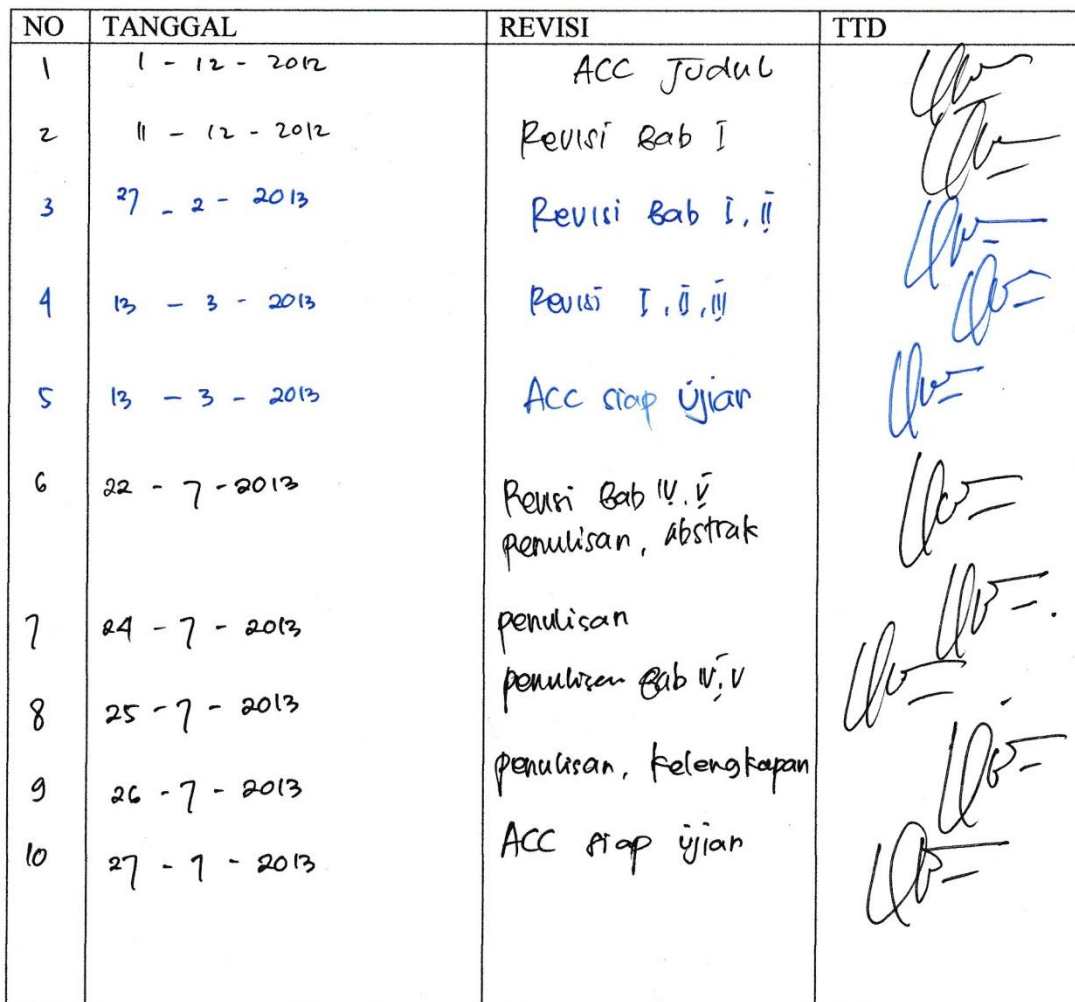 NO TANGGAL REVISI TTD
1 1 - 12 - 2012 ACC Judul
2 11 - 12 - 2012 Revisi Bab I
3 27 - 2 - 2013 Revisi Bab I, II
4 13 - 3 - 2013 Revisi I, II, III
5 13 - 3 - 2013 ACC siap Ujian
6 22 - 7 - 2013 Revisi Bab IV, V
penulisan, abstrak
7 24 - 7 - 2013 penulisan
8 25 - 7 - 2013 penulisan Bab IV, V
9 26 - 7 - 2013 penulisan, kelengkapan
10 27 - 7 - 2013 ACC siap ujian